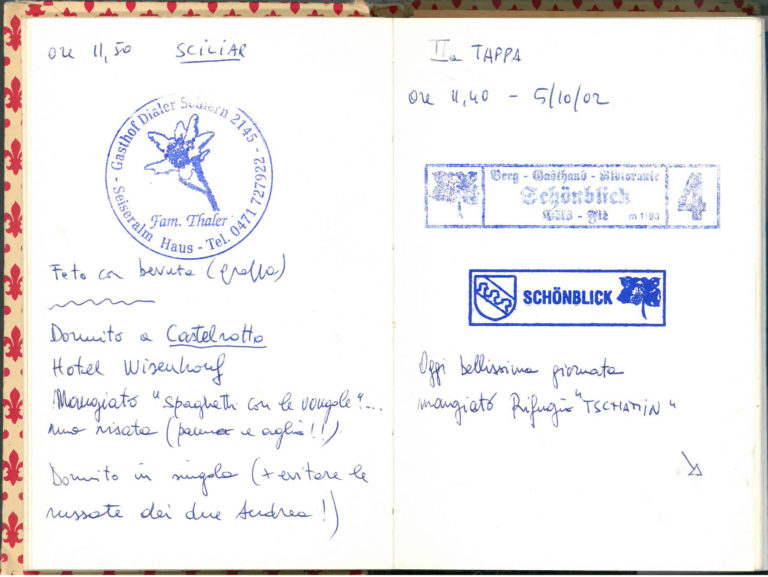 ore 11,50 SCILIAR
Gasthof Dialer Schlern 2145 - Seiseralm Haus - Tel. 0471 727922 -
Fam. Thaler
Foto con bevuta (grappa)
Dormito a Castelrotto
Hotel
Mangiato "Spaghetti con le vongole"...
una risata ( e aglio!!)
Dormito in singola (x evitare le
russate dei due Andrea!)
IIa TAPPA
ore 11,40 - 5/10/02
Berg - Gasthaus - Ristorante
Schönblick
4
SCHÖNBLICK
Oggi bellissima giornata
mangiato Rifugio "TSCHAMIN"